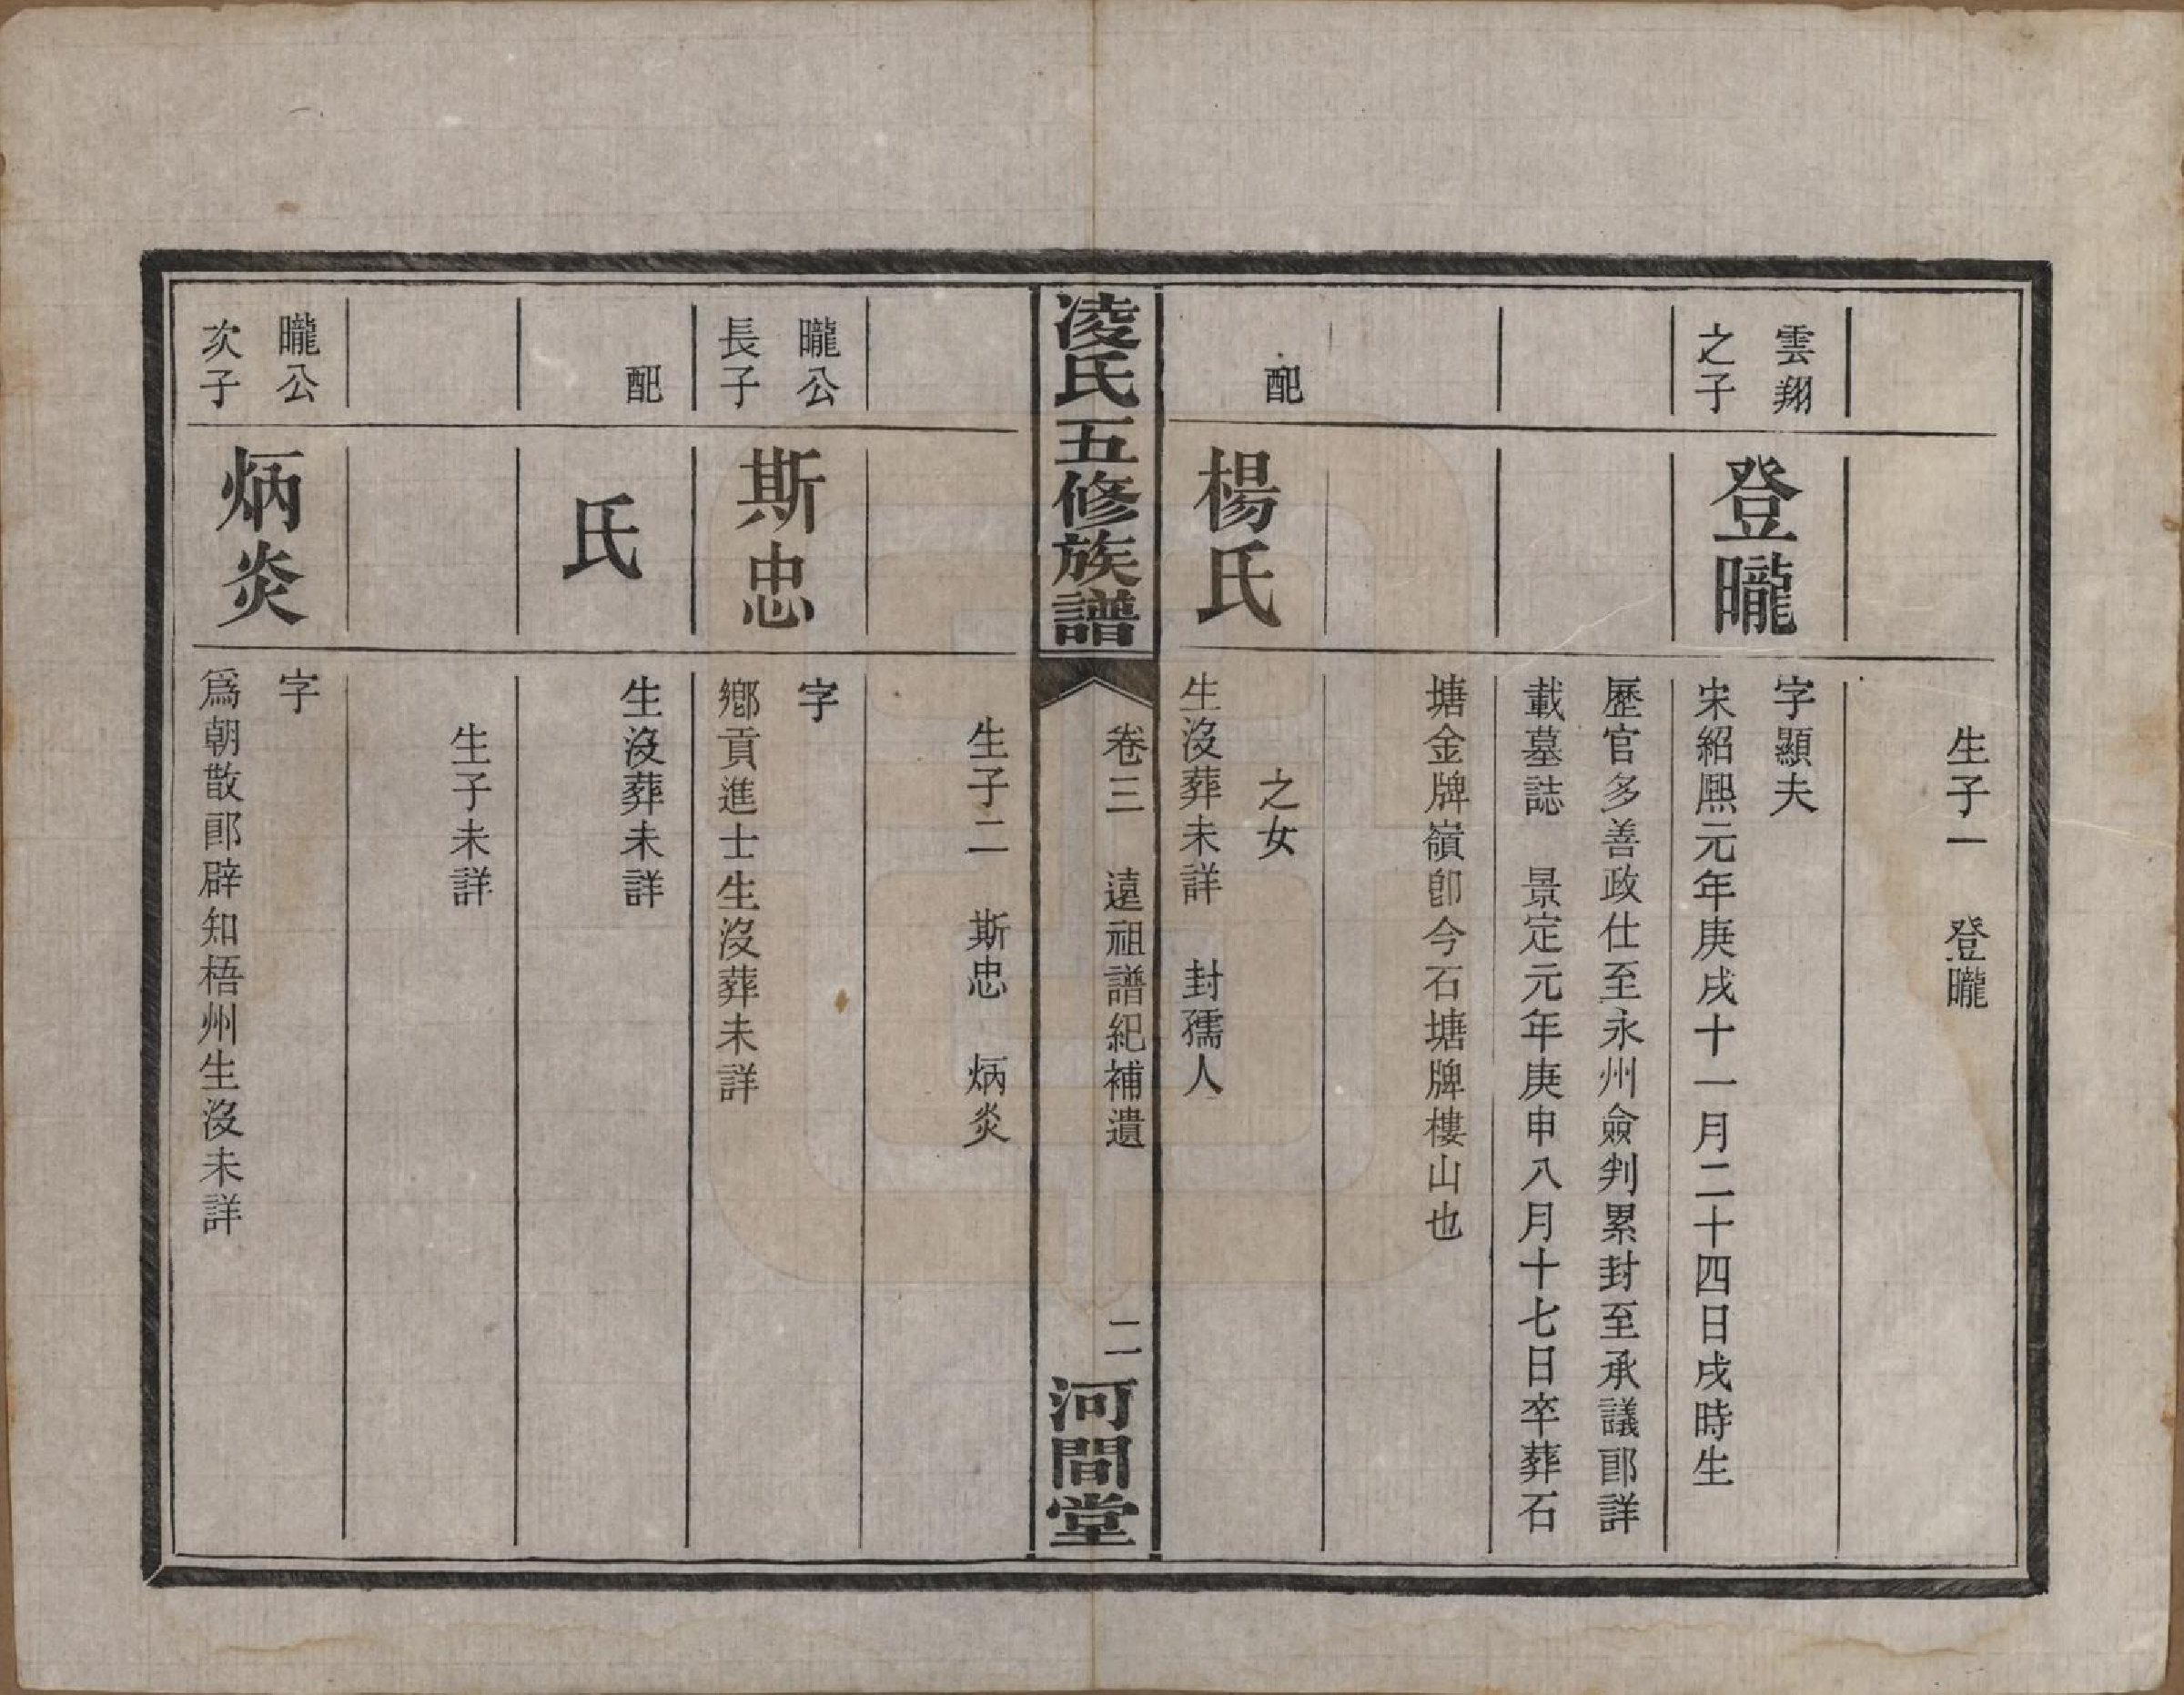 生子一　登曨
雲翔
之子
登曨
字顯夫
宋紹熙元年庚戌十一月二十四日戌時生
歷官多善政仕至永州僉判累封至承議郎詳
載墓誌　景定元年庚申八月十七日卒葬石
塘金牌嶺卽今石塘牌樓山也
配
楊氏
之女
生沒葬未詳　封孺人
凌氏五修族譜
卷三　遠祖譜紀補遺
二
河間堂
生子二　斯忠　炳炎
曨公
長子
斯忠
字
鄉貢進士生沒葬未詳
配
氏
生沒葬未詳
生子未詳
曨公
次子
炳炎
字
爲朝散郎辟知梧州生沒未詳